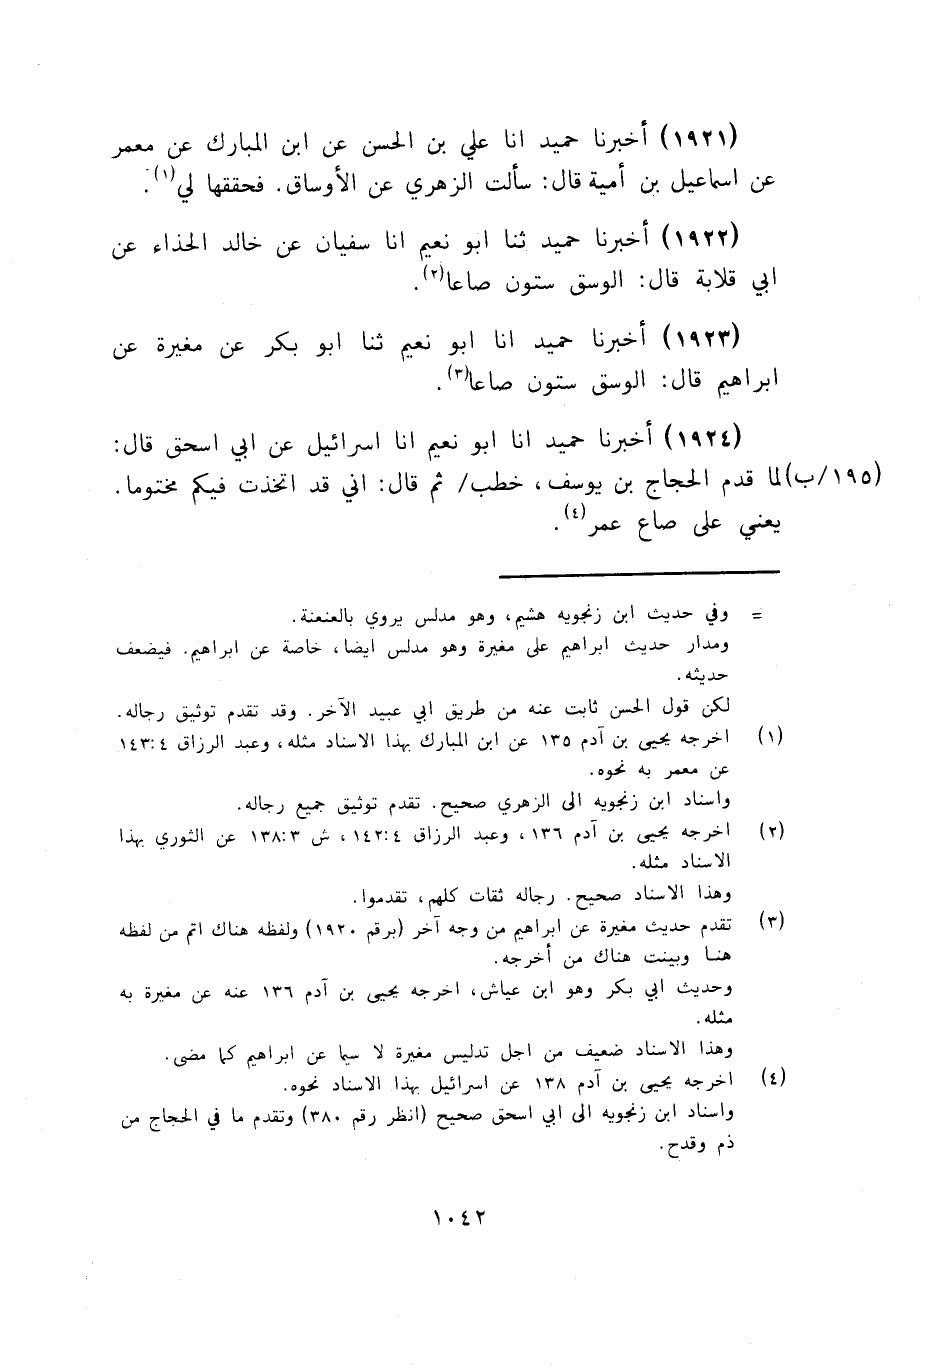 (١٩٢١) أخبرنا حميد انا علي بن الحسن عن ابن المبارك عن معمر
عن اسماعيل بن أمية قال: سألت الزهري عن الأوساق. فحققها لي(١).
(١٩٢٢) أخبرنا حميد ثنا ابو نعيم انا سفيان عن خالد الحذاء عن
ابي قلابة قال: الوسق ستون صاعا(٢).
(١٩٢٣) أخبرنا حميد انا ابو نعيم ثنا ابو بكر عن مغيرة عن
ابراهيم قال: الوسق ستون صاعا(٣).
(١٩٢٤) أخبرنا حميد انا ابو نعيم انا اسرائيل عن ابي اسحق قال:
(١٩٥/ب) لما قدم الحجاج بن يوسف، خطب/ ثم قال: اني قد اتخذت فيكم مختوما.
يعني على صاع عمر(٤).
= وفي حديث ابن زنجويه هشيم، وهو مدلس يروي بالعنعنة.
ومدار حديث ابراهيم على مغيرة وهو مدلس ايضا، خاصة عن ابراهيم. فيضعف
حديثه.
لكن قول الحسن ثابت عنه من طريق ابي عبيد الآخر. وقد تقدم توثيق رجاله.
(١) اخرجه يحيى بن آدم ١٣٥ عن ابن المبارك بهذا الاسناد مثله، وعبد الرزاق ٤:١٤٣
عن معمر به نحوه.
واسناد ابن زنجويه الى الزهري صحيح. تقدم توثيق جميع رجاله.
(٢) اخرجه يحيى بن آدم ١٣٦، وعبد الرزاق ٤:١٤٢، ش ٣:١٣٨ عن الثوري بهذا
الاسناد مثله.
وهذا الاسناد صحيح. رجاله ثقات كلهم، تقدموا.
(٣) تقدم حديث مغيرة عن ابراهيم من وجه آخر (برقم ١٩٢٠) ولفظه هناك اتم من لفظه
هنا وبينت هناك من أخرجه.
وحديث ابي بكر وهو ابن عياش، اخرجه يحيى بن آدم ١٣٦ عنه عن مغيرة به
مثله.
وهذا الاسناد ضعيف من اجل تدليس مغيرة لا سيما عن ابراهيم كما مضى.
(٤) اخرجه يحيى بن آدم ١٣٨ عن اسرائيل بهذا الاسناد نحوه.
واسناد ابن زنجويه الى ابي اسحق صحيح (انظر رقم ٣٨٠) وتقدم ما في الحجاج من
ذم وقدح.
١٠٤٢